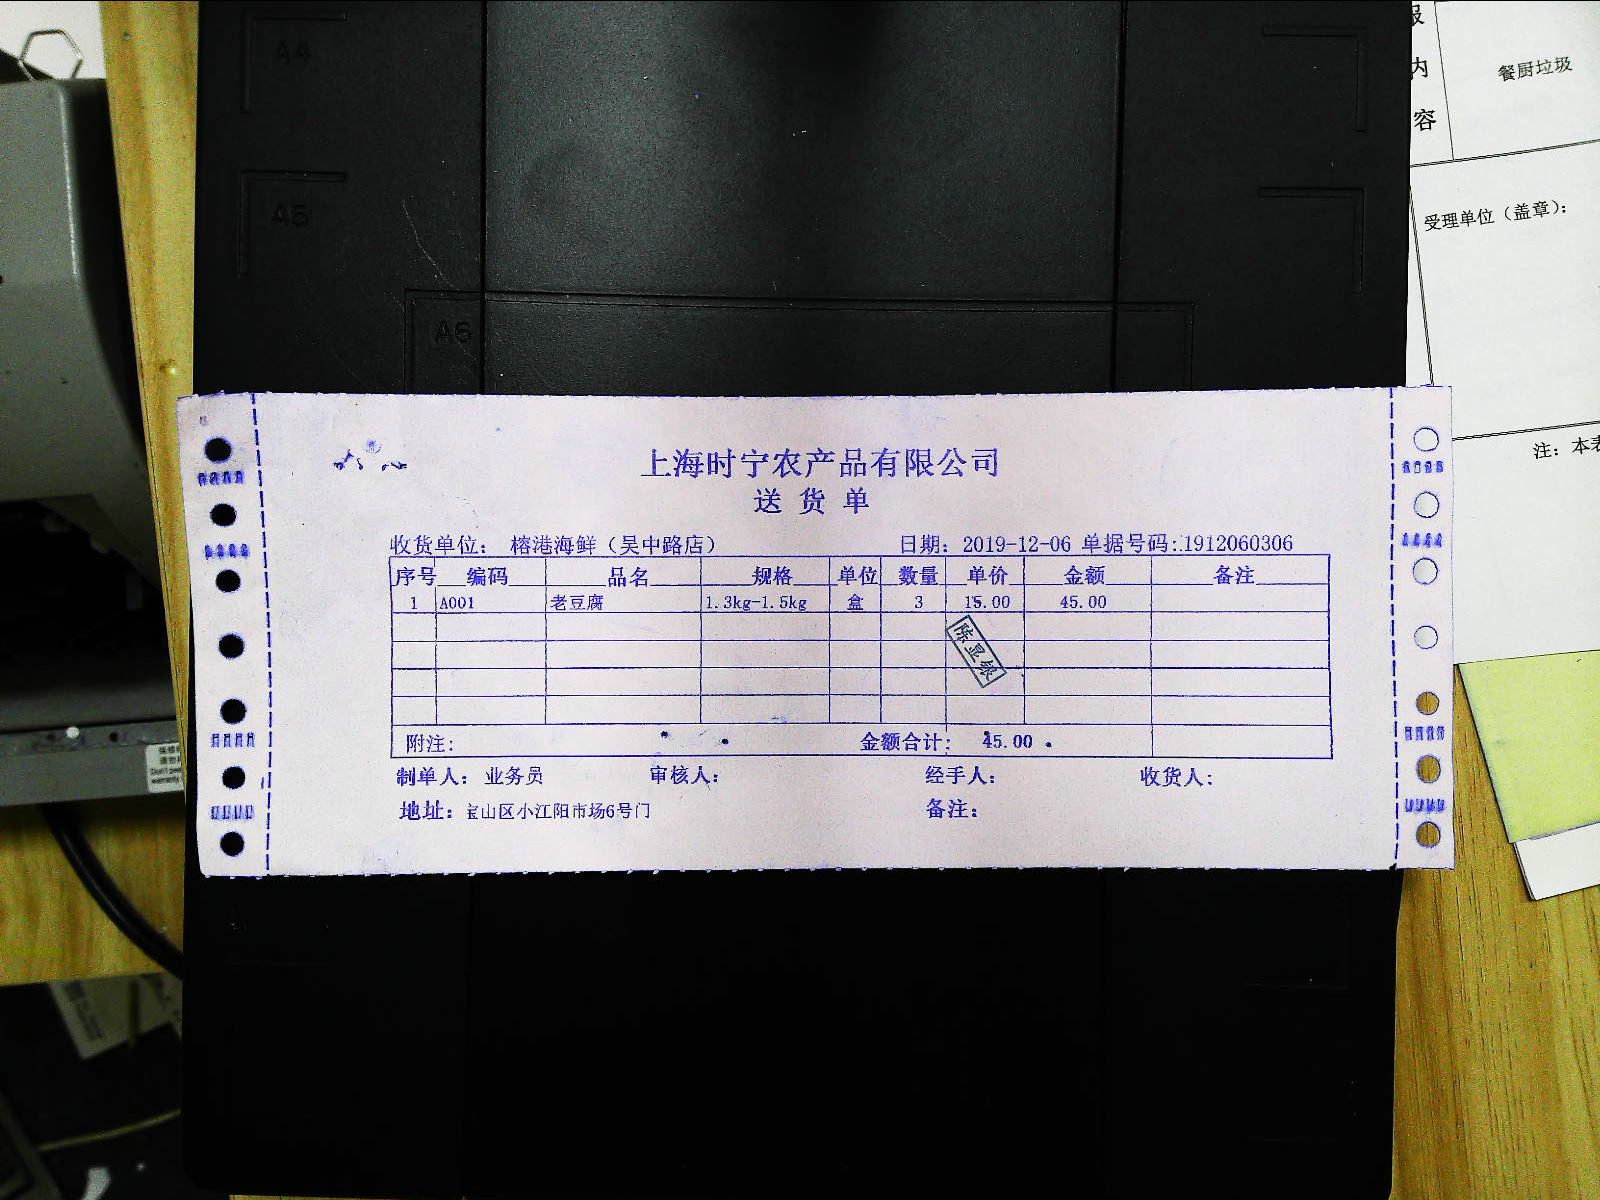 A4
A5
A6
报
内
容
餐厨垃圾
受理单位（盖章）：
注：本表
上海时宁农产品有限公司
送货单
收货单位： 榕港海鲜（吴中路店） 日期：2019-12-06 单据号码:1912060306
序号 编码 品名 规格 单位 数量 单价 金额 备注
1 A001 老豆腐 1.3kg-1.5kg 盒 3 15.00 45.00
陈显银
附注: 金额合计: 45.00
制单人：业务员 审核人: 经手人: 收货人:
地址：宝山区小江阳市场6号门 备注: